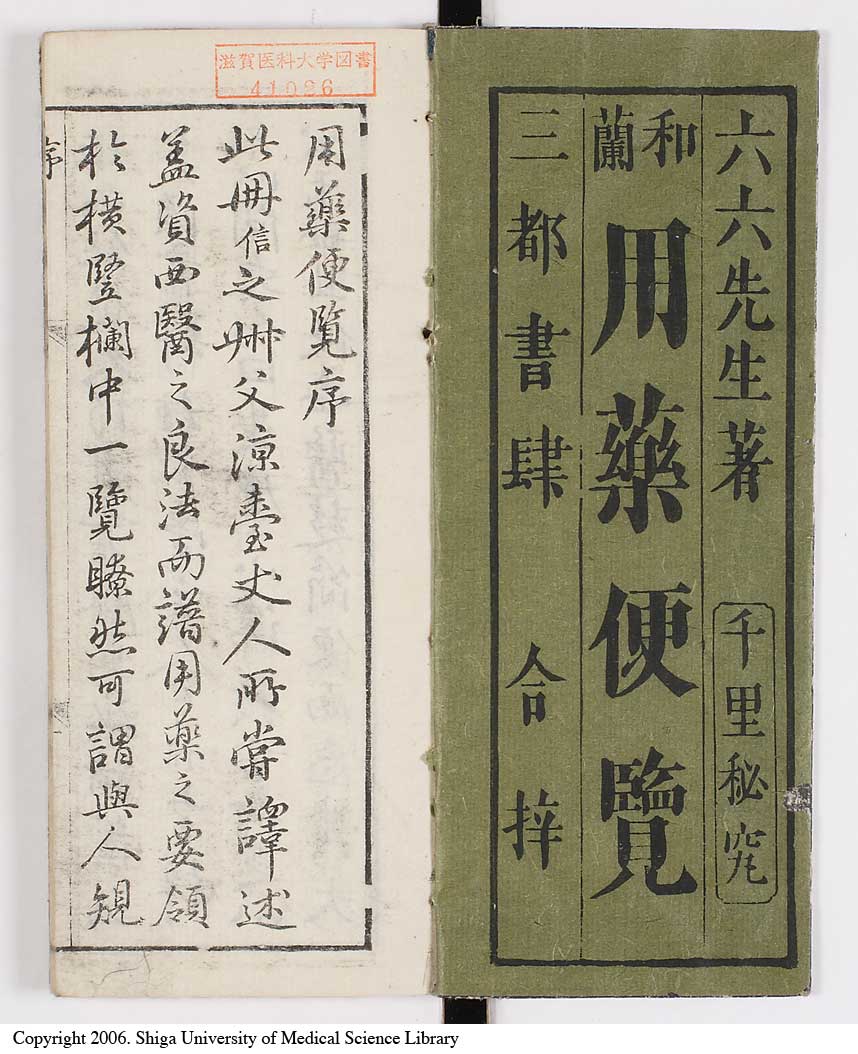 六六先生著
千里必究
和蘭
用藥便覽
三都書肆 合梓
滋賀医科大学図書
41026
用藥便覽序
此冊信之舛父涼臺丈人所嘗譯述
蓋資西醫之良法而譜用藥之要領
於橫豎欄中一覽瞭然可謂與人規
序
Copyright 2006. Shiga University of Medical Science Library